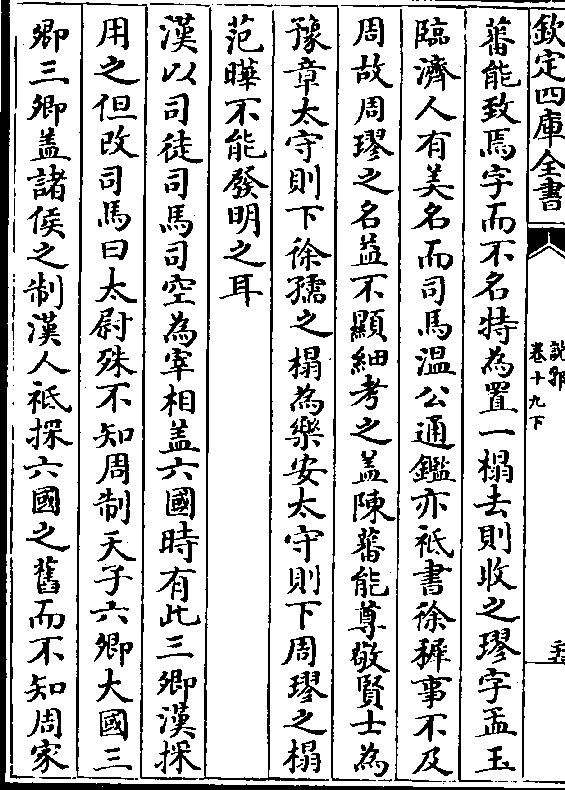 欽定四庫全書
說郛
卷十九下
蕃能致焉字而不名特為置一榻去則收之璆字孟玉
臨濟人有美名而司馬溫公通鑑亦祗書徐穉事不及
周故周璆之名益不顯細考之蓋陳蕃能尊敬賢士為
豫章太守則下徐孺之榻為樂安太守則下周璆之榻
范曄不能發明之耳
漢以司徒司馬司空為宰相盖六國時有此三卿漢採
用之但改司馬曰太尉殊不知周制天子六卿大國三
卿三卿盖諸侯之制漢人祗採六國之舊而不知周家